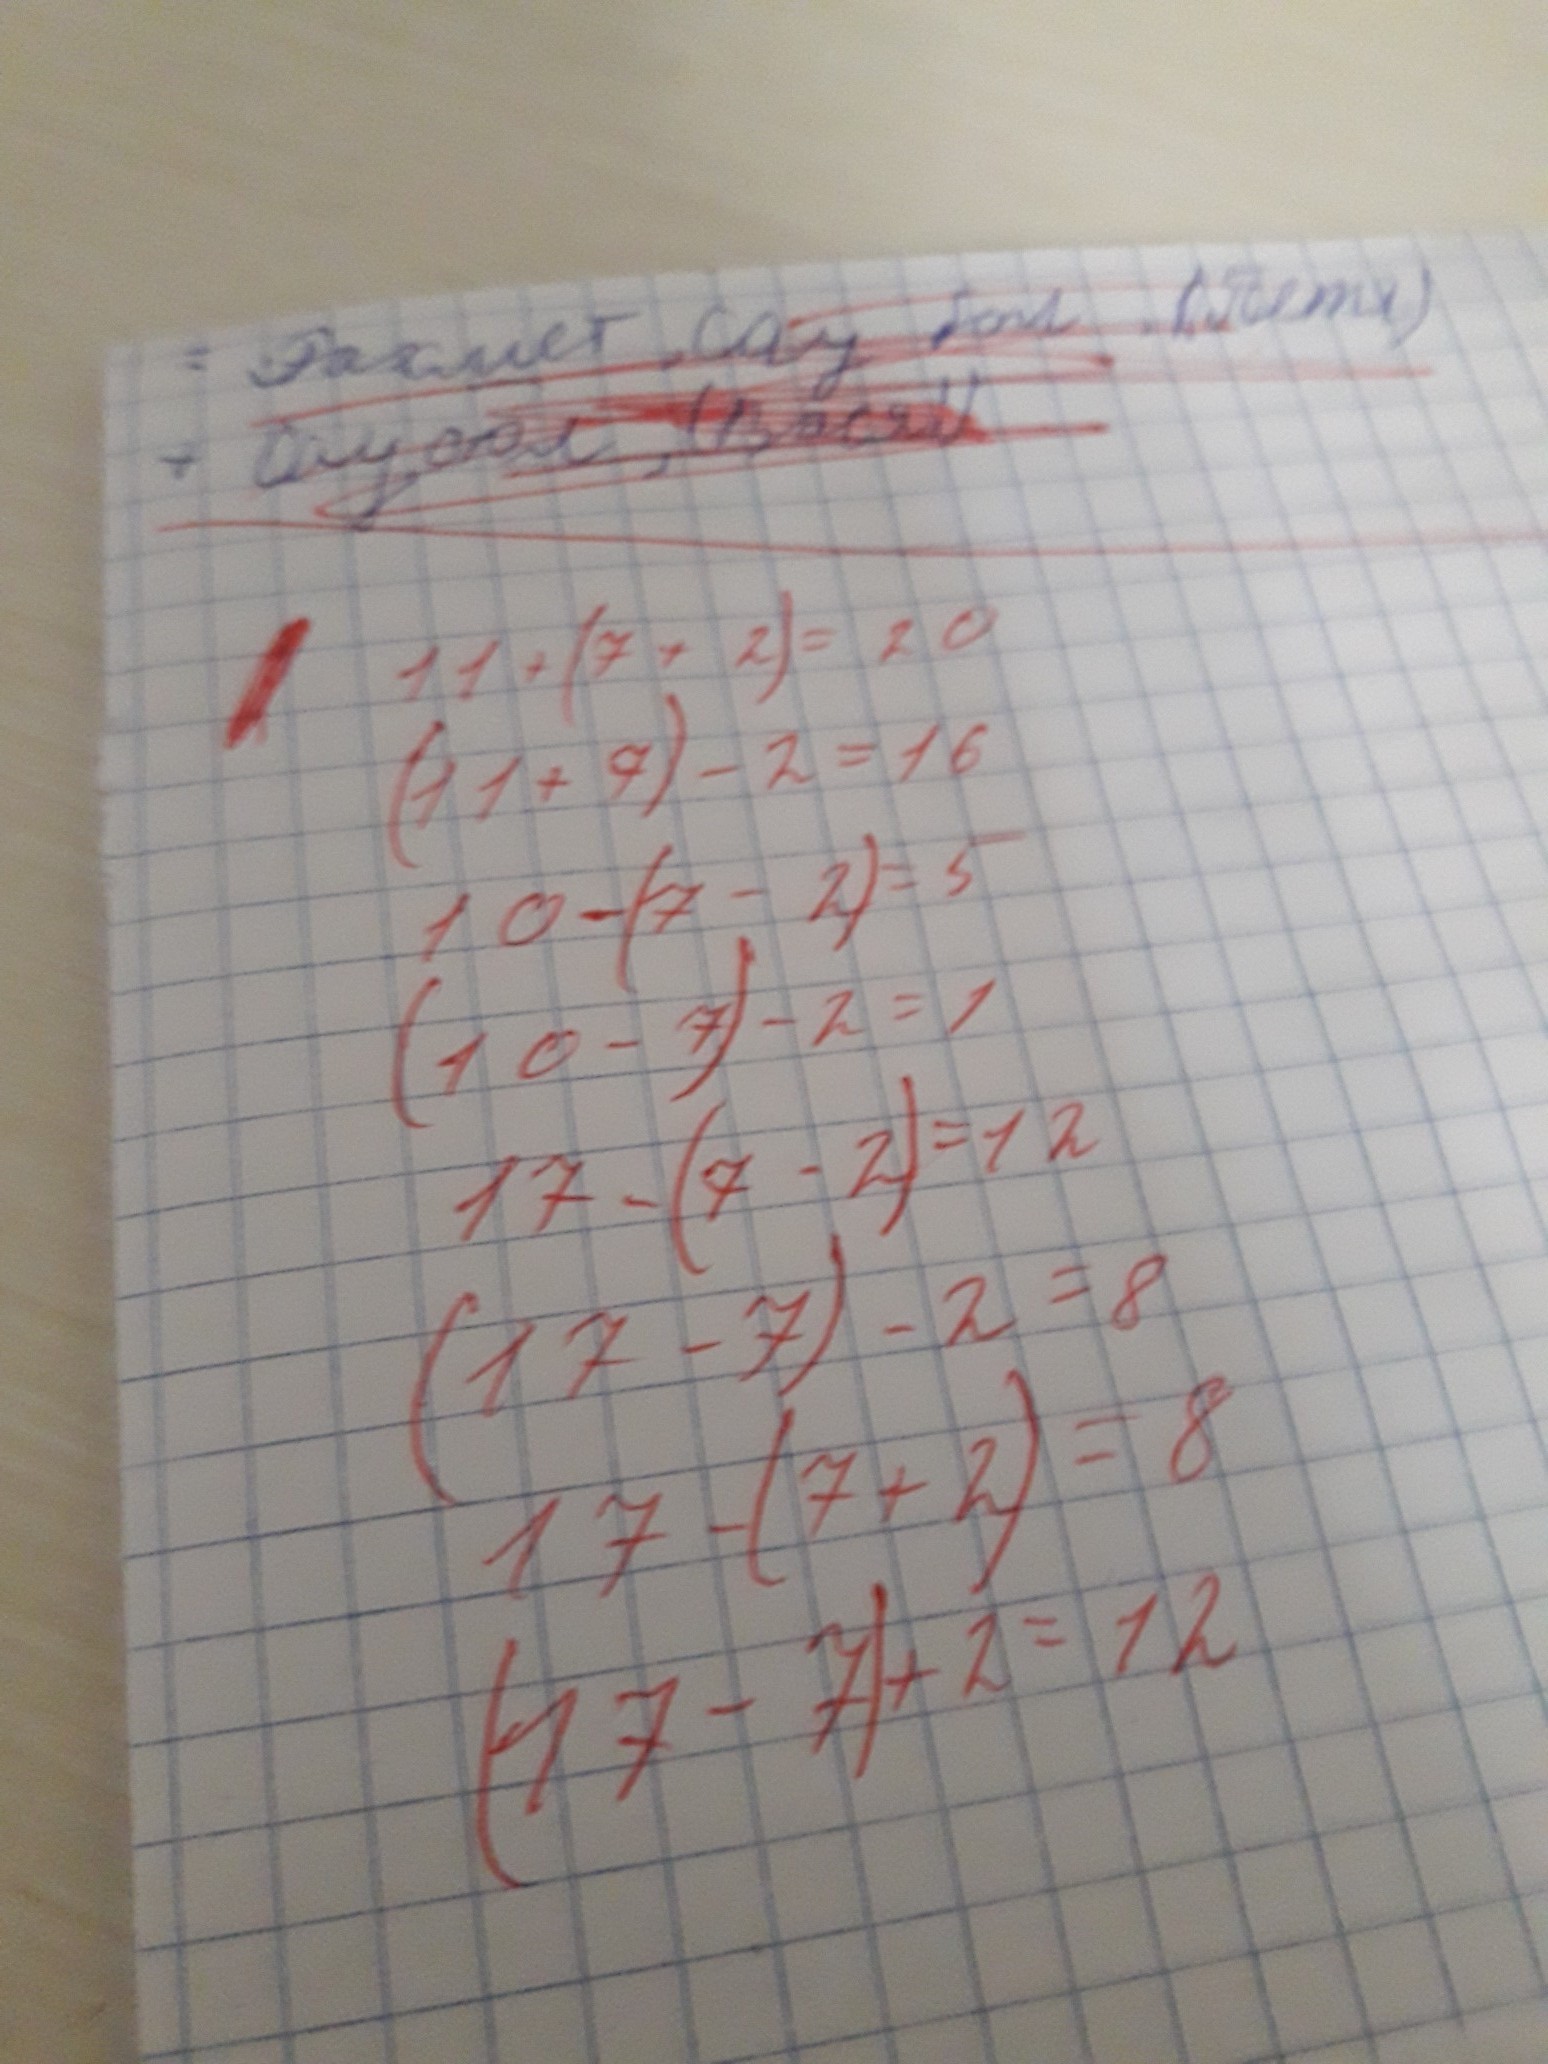 = Рахмет, Сау бол. (Петя)
+ Сау бол, (Вася)
11+(7+2)=20
(11+7)-2=16
10-(7-2)=5
(10-7)-2=1
17-(7-2)=12
(17-7)-2=8
17-(7+2)=8
(17-7)+2=12